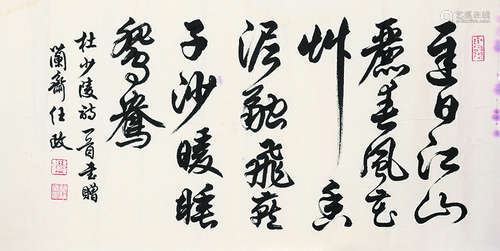 遲日江山
麗春風花
艸香
泥融飛燕
子沙暖睡
鴛鴦
杜少陵詩一首書贈
蘭齋任政